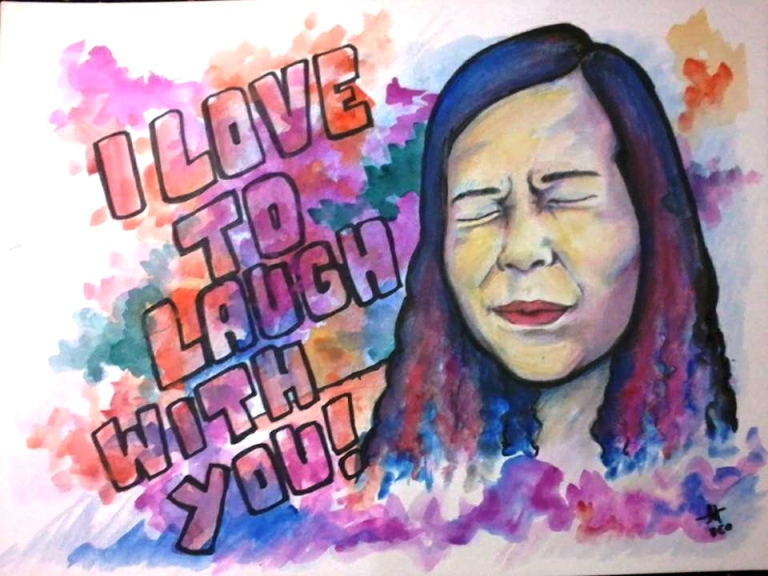 I LOVE
TO
LAUGH
WITH
YOU!